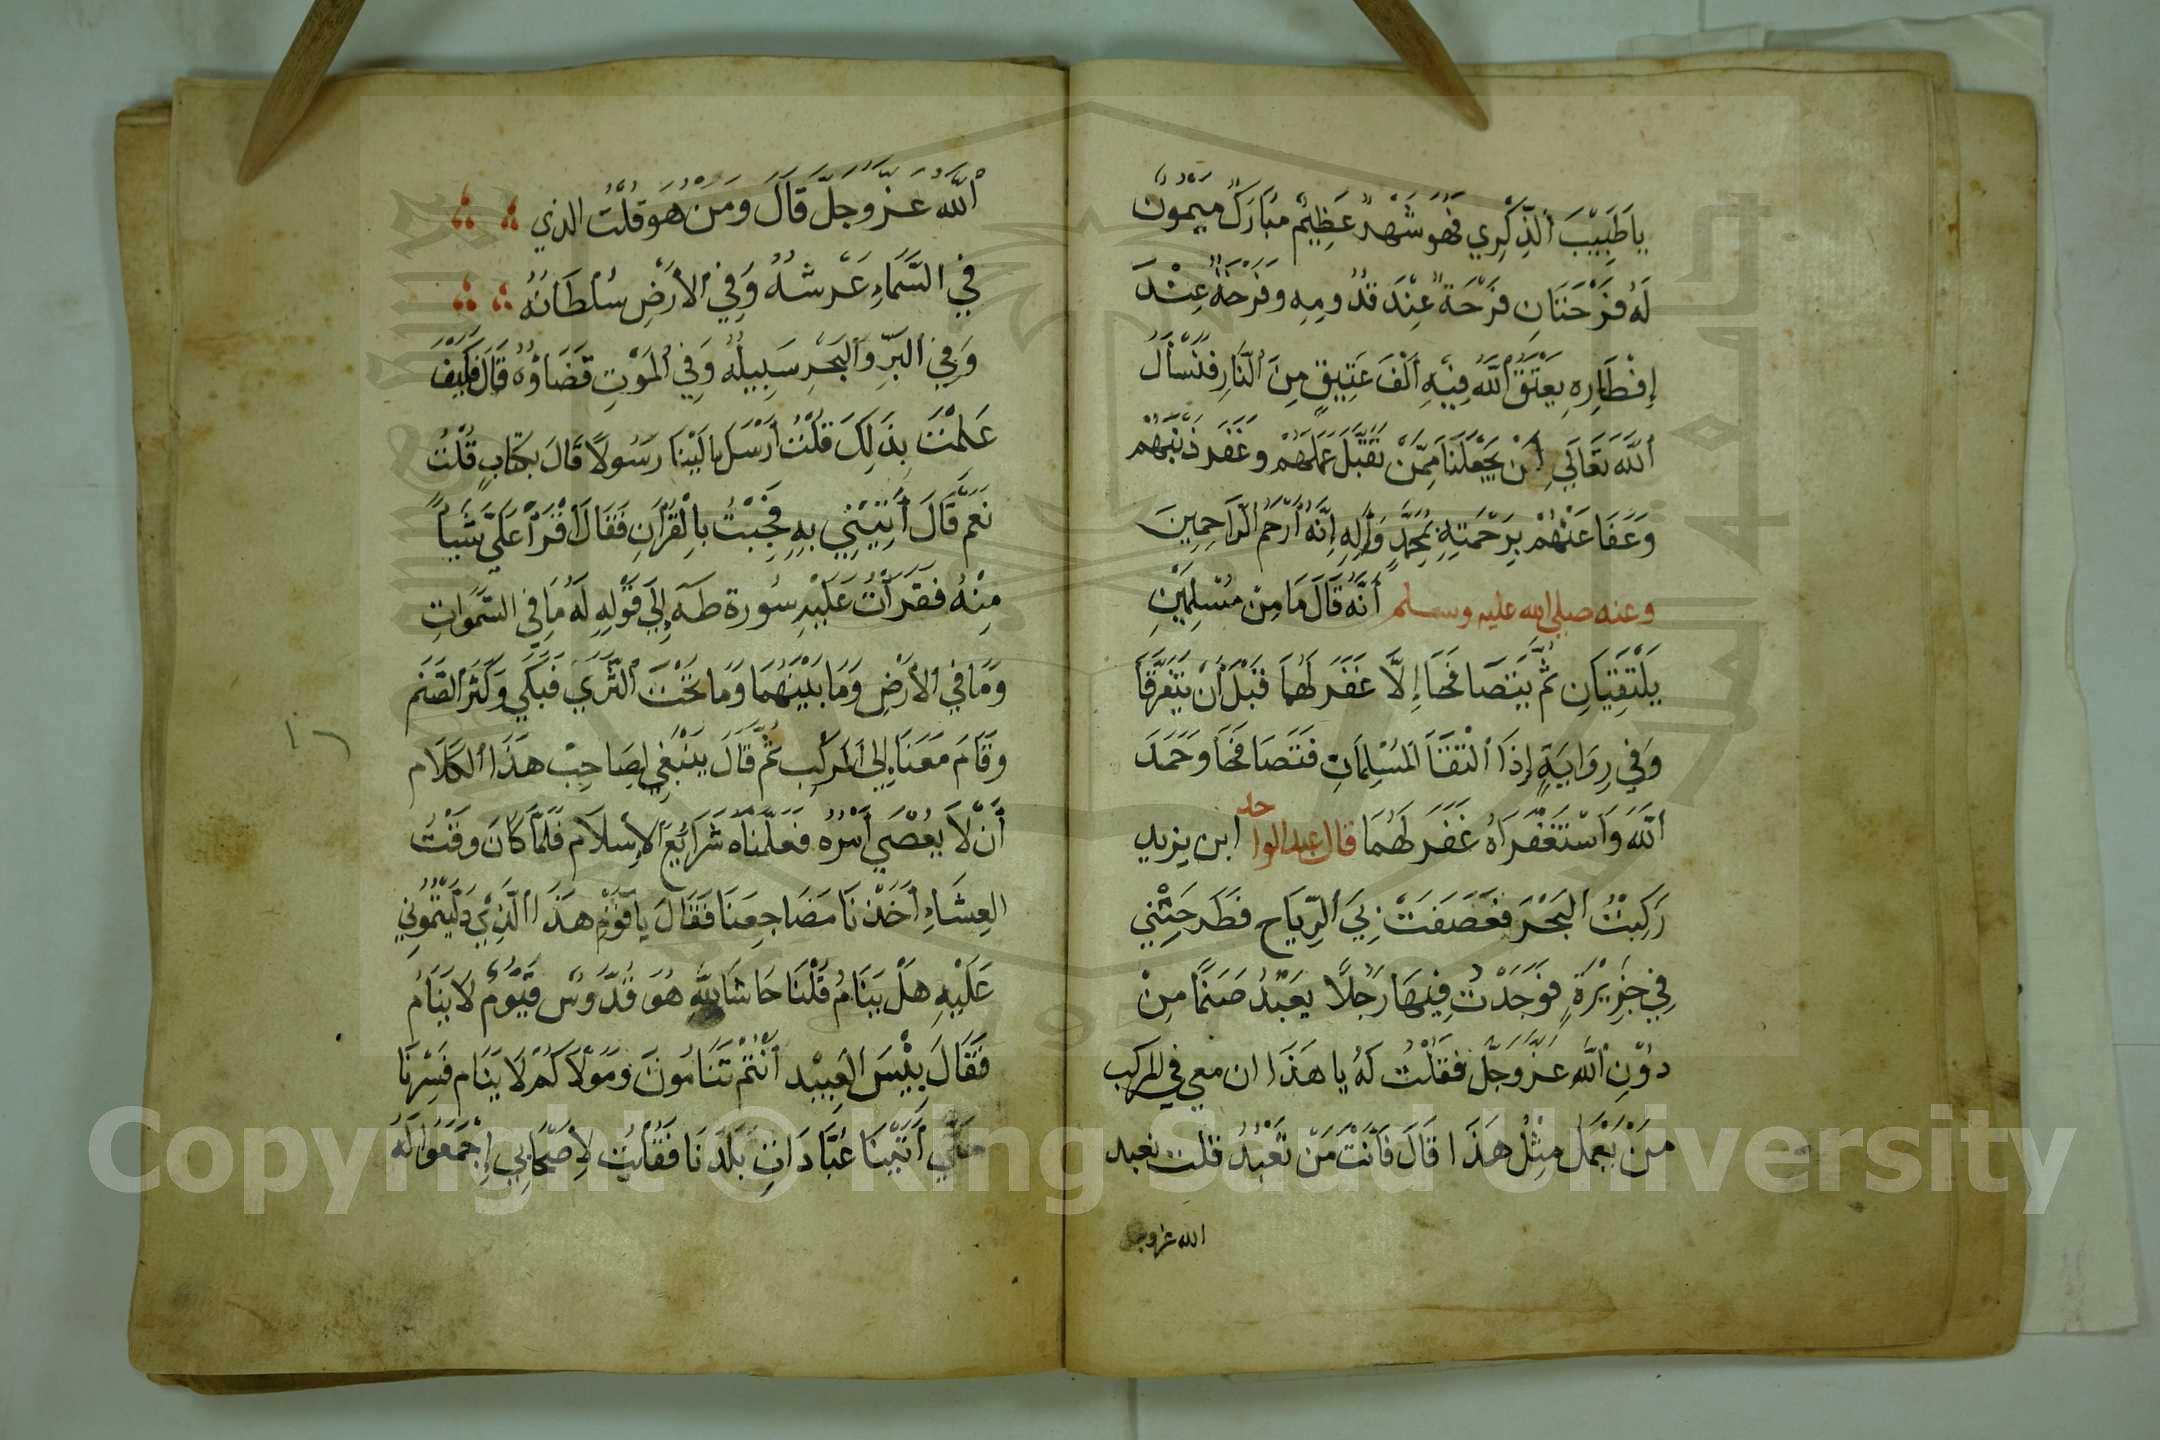 ياطَبِيْبَ الذِّكْرِي فَهُوَ شَهْرٌ عَظِيْمٌ مُبَارَكٌ مَيْمُونٌ
لَهُ فَرْحَتَانِ فَرْحَةٌ عِنْدَ قُدُومِهِ وَفَرْحَةٌ عِنْدَ
إِفْطَارِهِ يَعْتِقُ اللَّهُ فِيْهِ أَلْفَ عَتِيقٍ مِنَ النَّارِ فَنَسْأَلُ
اللَّهَ تَعَالَى أَنْ يَجْعَلَنَا مِمَّنْ تَقَبَّلَ عَمَلَهُمْ وَغَفَرَ ذَنْبَهُمْ
وَعَفَا عَنْهُمْ بِرَحْمَتِهِ بِمُحَمَّدٍ وَآلِهِ إِنَّهُ أَرْحَمُ الرَّاحِمِينَ
وعنه صلى الله عليه وسلم أَنَّهُ قَالَ مَا مِنْ مُسْلِمَيْنِ
يَلْتَقِيَانِ ثُمَّ يَتَصَافَحَا إِلَّا غَفَرَ لَهُمَا قَبْلَ أَنْ يَتَفَرَّقَا
وَفِي رِوَايَةٍ إِذَا الْتَقَا الْمُسْلِمَانِ فَتَصَافَحَا وَحَمَدَ
اللَّهَ وَاسْتَغْفَرَاهُ غَفَرَ لَهُمَا قال عبد الواحد ابن يزيد
رَكِبْتُ الْبَحْرَ فَعَصَفَتْ بِيَ الرِّيَاح فَطَرَحَتْنِي
فِي جَزِيْرَةٍ فَوَجَدْتُ فِيْهَا رَجُلًا يَعْبُدُ صَنَمًا مِنْ
دُوْنِ اللَّهِ عَزَّ وَجَلَّ فَقُلْتُ لَهُ يا هَذَا ان معي في المركب
مَنْ يَعْمَلُ مِثْلُ هَذَا قَالَ فَأَنْتَ مَنْ تَعْبُدُ قلت نعبد
الله عزوجل
اللَّهَ عَزَّ وَجَلَّ قَالَ وَمَنْ هُوَ قُلْتُ الذي
فِي السَّمَاءِ عَرْشُهُ وَفِي الْأَرْضِ سُلْطَانُهُ
وَفِي الْبَرِّ وَالْبَحْرِ سَبِيلُهُ وَفِي الْمَوْتِ قَضَاؤُهُ قَالَ فَكَيْفَ
عَلِمْتَ بِذَلِكَ قُلْتُ أَرْسَلَ إِلَيْنَا رَسُولًا قَالَ بِكِتَابٍ قُلْتُ
نَعَمْ قَالَ أَتِيْنِي بِهِ فَجِبْتُ بِالْقُرْآنِ فَقَالَ اقْرَأْ عَلَيَّ شَيْأً
مِنْهُ فَقَرَأْتُ عَلَيْهِ سُورة طَهَ إِلَى قَوْلِهِ لَهُ مَا فِي السَّمَوَاتِ
وَمَا فِي الْأَرْضِ وَمَا بَيْنَهُمَا وَمَا تَحْتَ الثَّرَى فَبَكَى وَكَسَرَ الصَّنَم
وَقَامَ مَعَنَا إِلَى الْمَرْكَب ثُمَّ قَالَ يَنْبَغِي لِصَاحِبْ هَذَا الْكَلَام
أَنْ لَا يُعْصَى أَمْرُهُ فَعَلَّمْنَاهُ شَرَائِعَ الْإِسْلَام فَلَمَّا كَانَ وَقْتُ
الْعِشَاءِ أَخَذْنَا مَضَاجِعَنَا فَقَالَ يا قَوْمِ هَذَا الَّذِيْ دَلَّيْتُمُونِي
عَلَيْهِ هَلْ يَنَامُ قُلْنَا حَاشَا لِلَّهِ هُوَ قُدُّوسٌ قَيُّومٌ لَا يَنَامُ
فَقَالَ بِئْسَ الْعَبِيْد أَنْتُمْ تَنَامُونَ وَمَوْلَاكُمْ لَا يَنَام فَسِرْنَا
حَتَّى أَتَيْنَا عَبَّادَانَ بَلَدَنَا فَقُلْتُ لِأَصْحَابِي إِجْمَعُوا لَهُ
Copyright © King Saud University